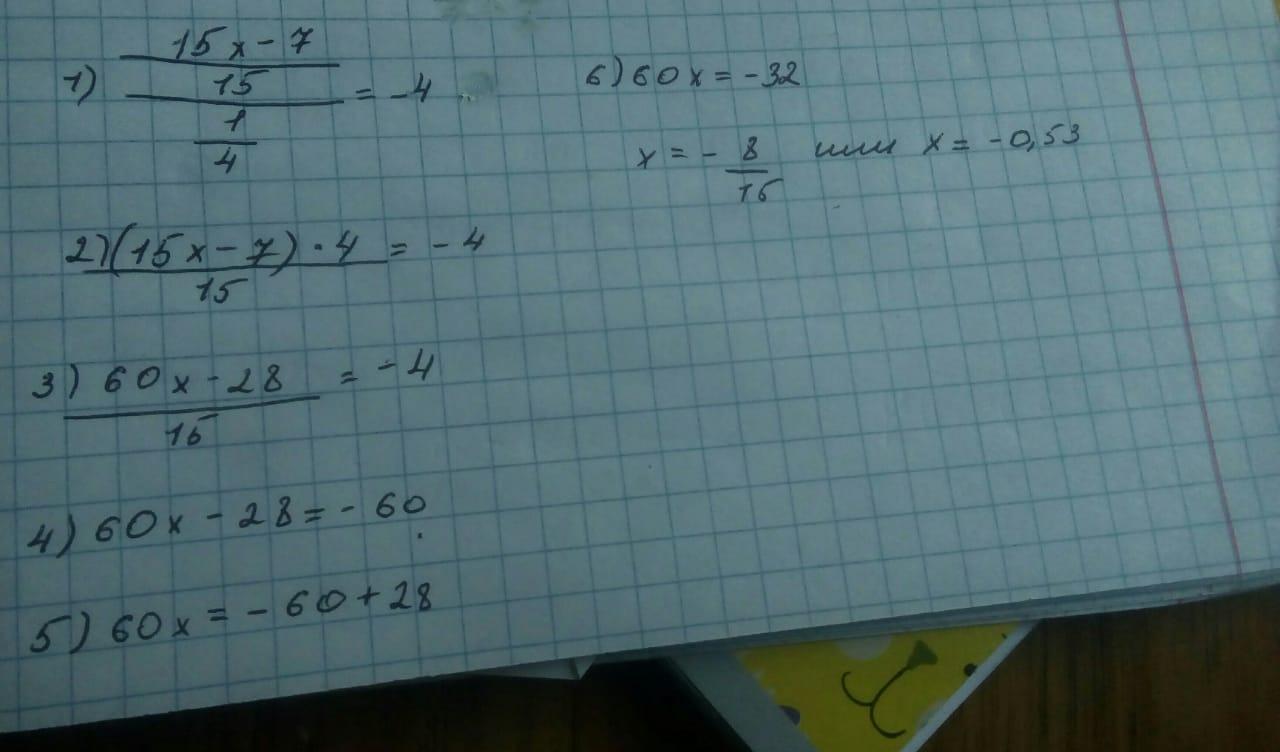 15x - 7
1) 15 = -4
1
4
2) (15x - 7) · 4 = -4
15
3) 60x - 28 = -4
15
4) 60x - 28 = -60
5) 60x = -60 + 28
6) 60x = -32
x = - 8 или x = -0,53
15